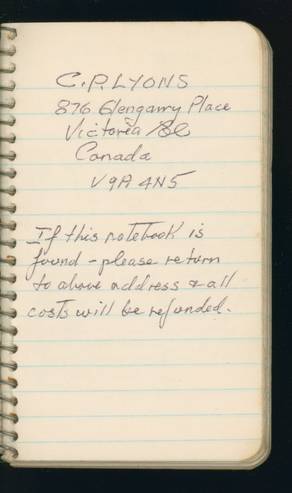 C.P. LYONS
876 Glengarry Place
Victoria BC
Canada
V9A 4N5
If this notebook is
found - please return
to above address & all
costs will be refunded.